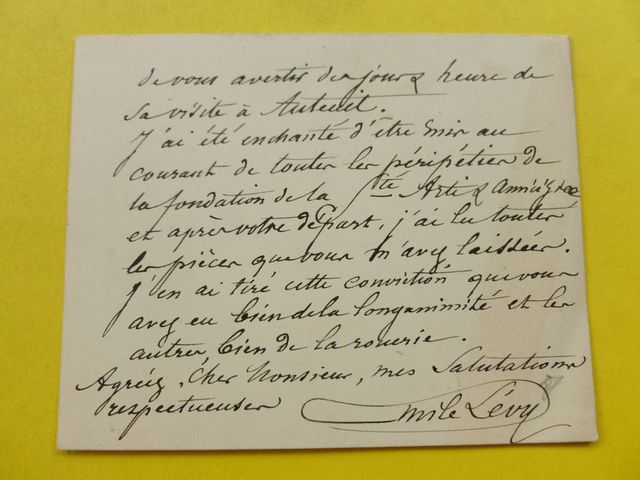 de vous avertir des jour & heure de
sa visite à Auteuil.
J'ai été enchanté d'être mis au
courant de toutes les péripéties de
la fondation de la Sté Arti &
et après votre départ, j'ai lu toutes
les pièces que vous m'avez laissées.
J'en ai tiré cette conviction que vous
avez eu bien de la longanimité et les
autres, bien de la rouerie.
Agréez, Cher Monsieur, mes Salutations
respectueuses Emile Lévy